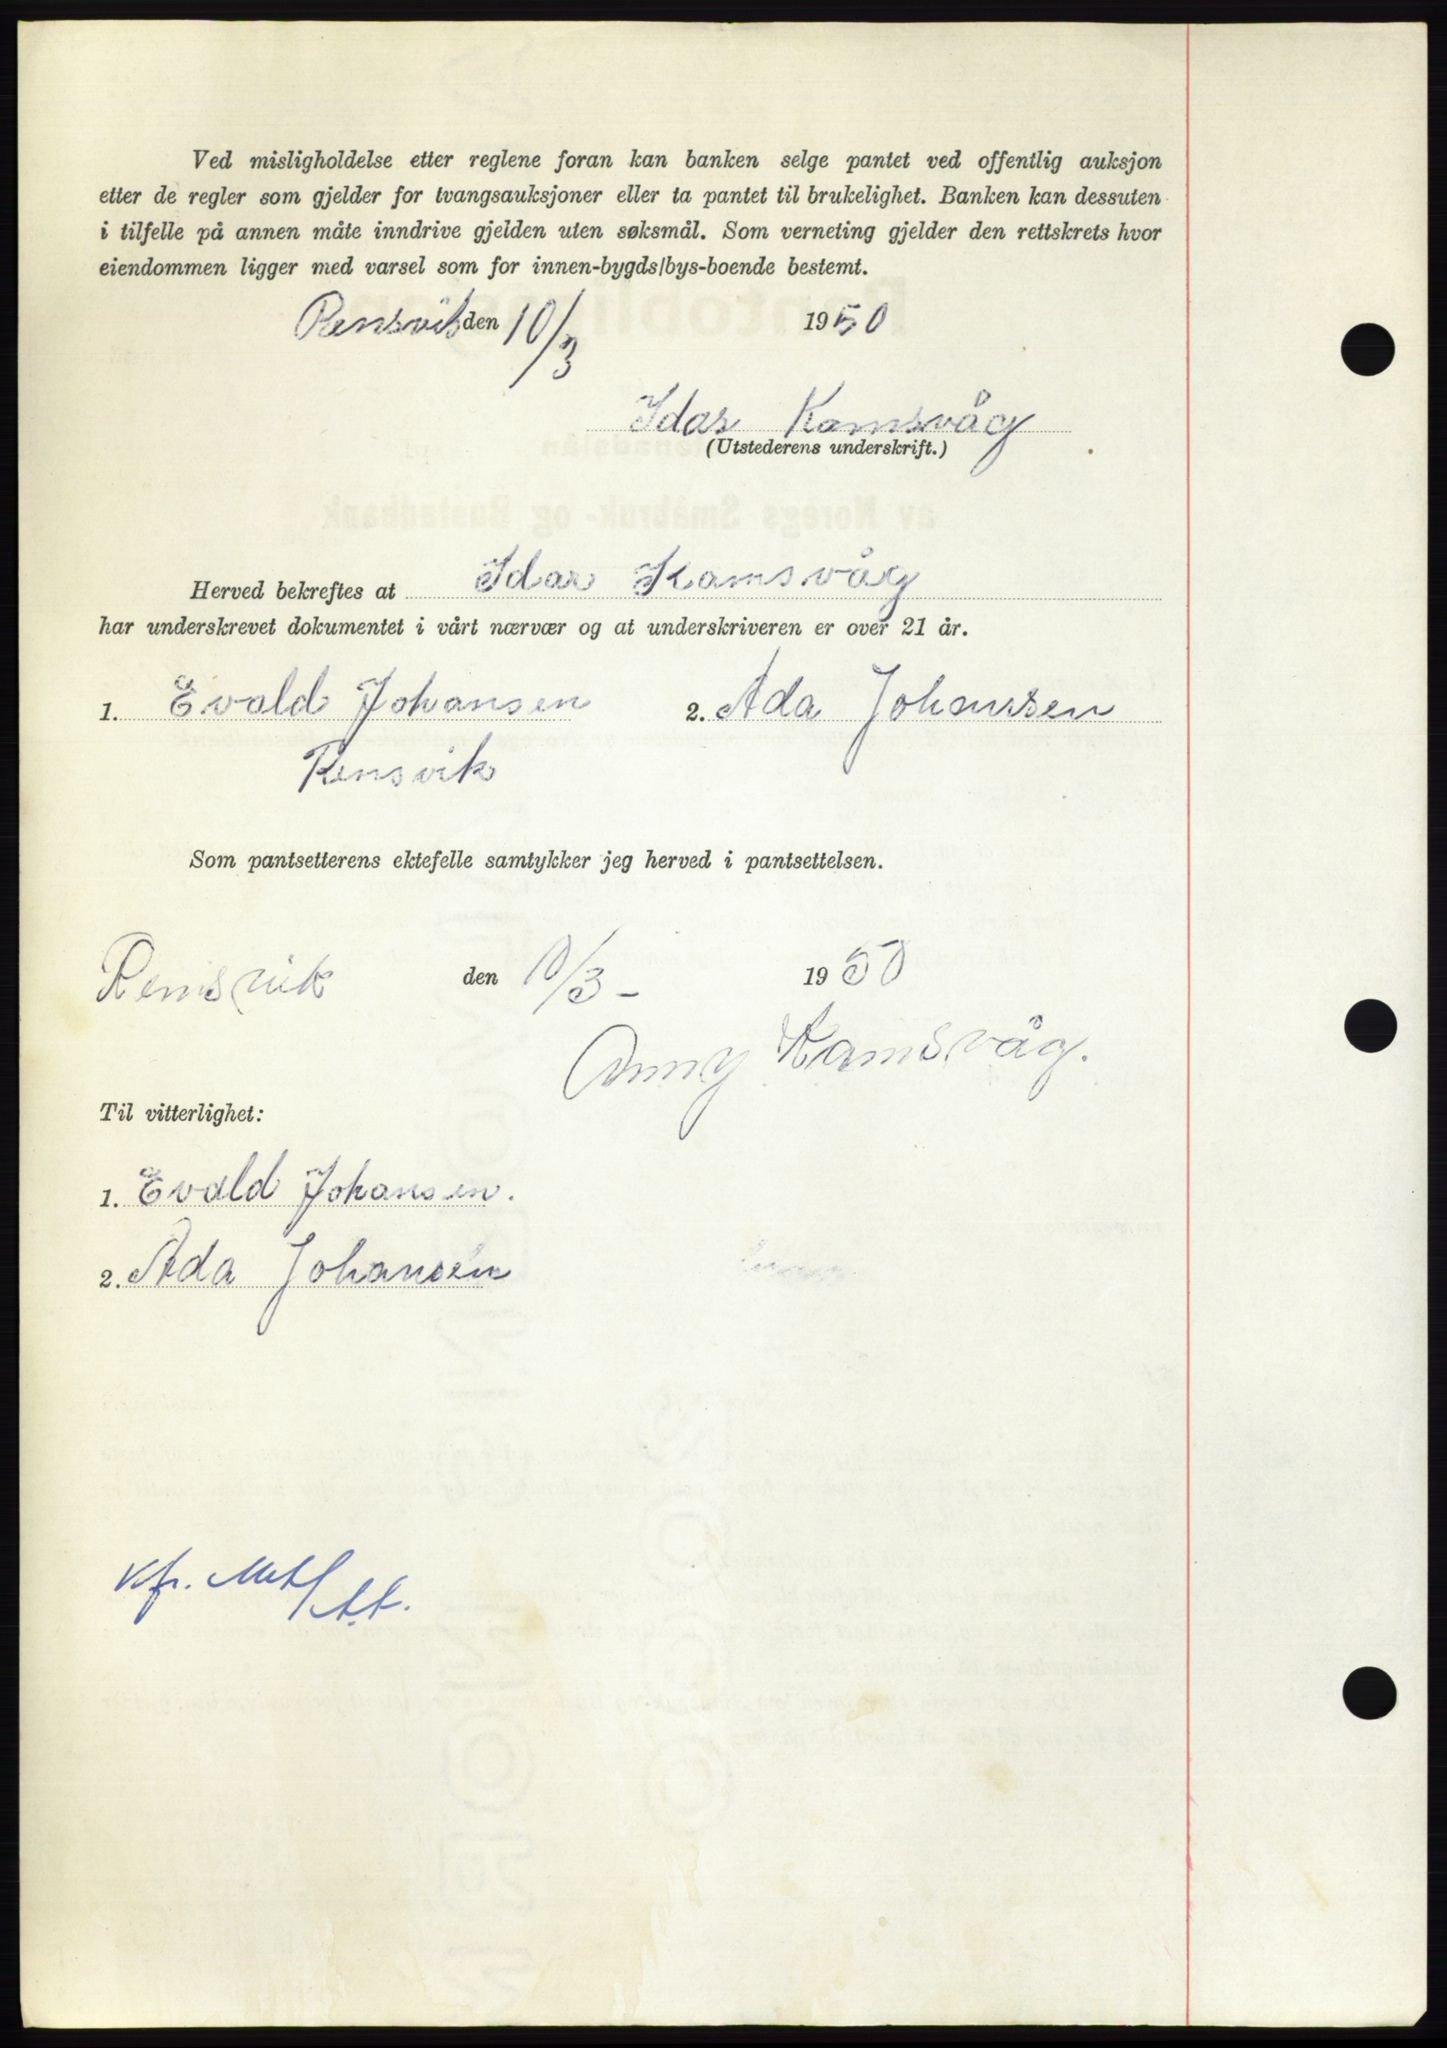 Ved misligholdelse etter reglene foran kan banken selge pantet ved offentlig auksjon
etter de regler som gjelder for tvangsauksjoner eller ta pantet til brukelighet. Banken kan dessuten
i tilfelle på annen måte inndrive gjelden uten søksmål. Som verneting gjelder den rettskrets hvor
eiendommen ligger med varsel som for innen-bygds/bys-boende bestemt.
Rensvik den 10/3 1950
Idar Kamsvåg
(Utstederens underskrift.)
Herved bekreftes at Idar Kamsvåg
har underskrevet dokumentet i vårt nærvær og at underskriveren er over 21 år.
1. Evald Johansen 2. Ada Johanssen
Rensvik
Som pantsetterens ektefelle samtykker jeg herved i pantsettelsen.
Rensvik den 10/3- 1950
Anny Kamsvåg.
Til vitterlighet:
1. Evald Johansen.
2. Ada Johansen